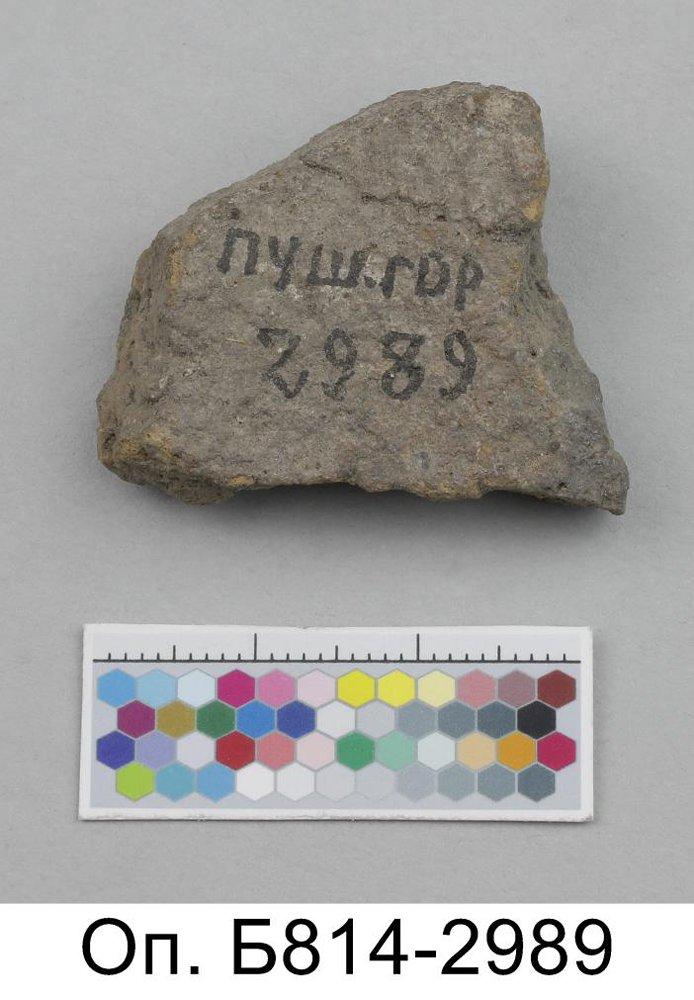 пуш.гор
2989
Оп. Б814-2989